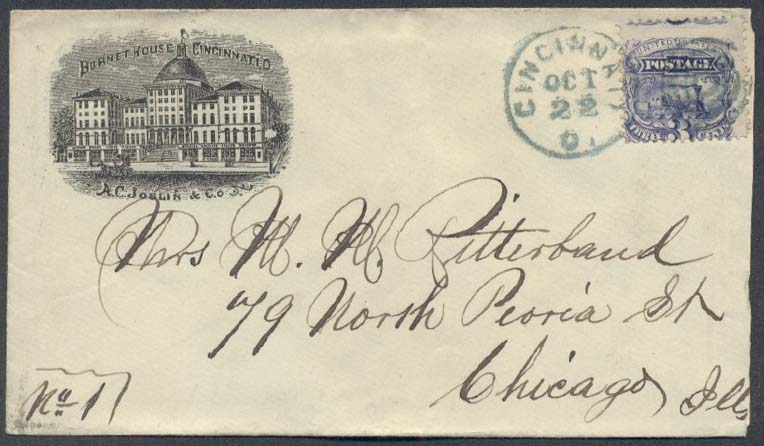 BURNET HOUSE CINCINNATI, O
A.C. JOSLIN & CO.
CINCINNATI
OCT
22
O.
UNITED STATES
POSTAGE
THREE 3 CENTS
Mrs M. M. Ritterband
79 North Peoria St
Chicago, Ills
No 1